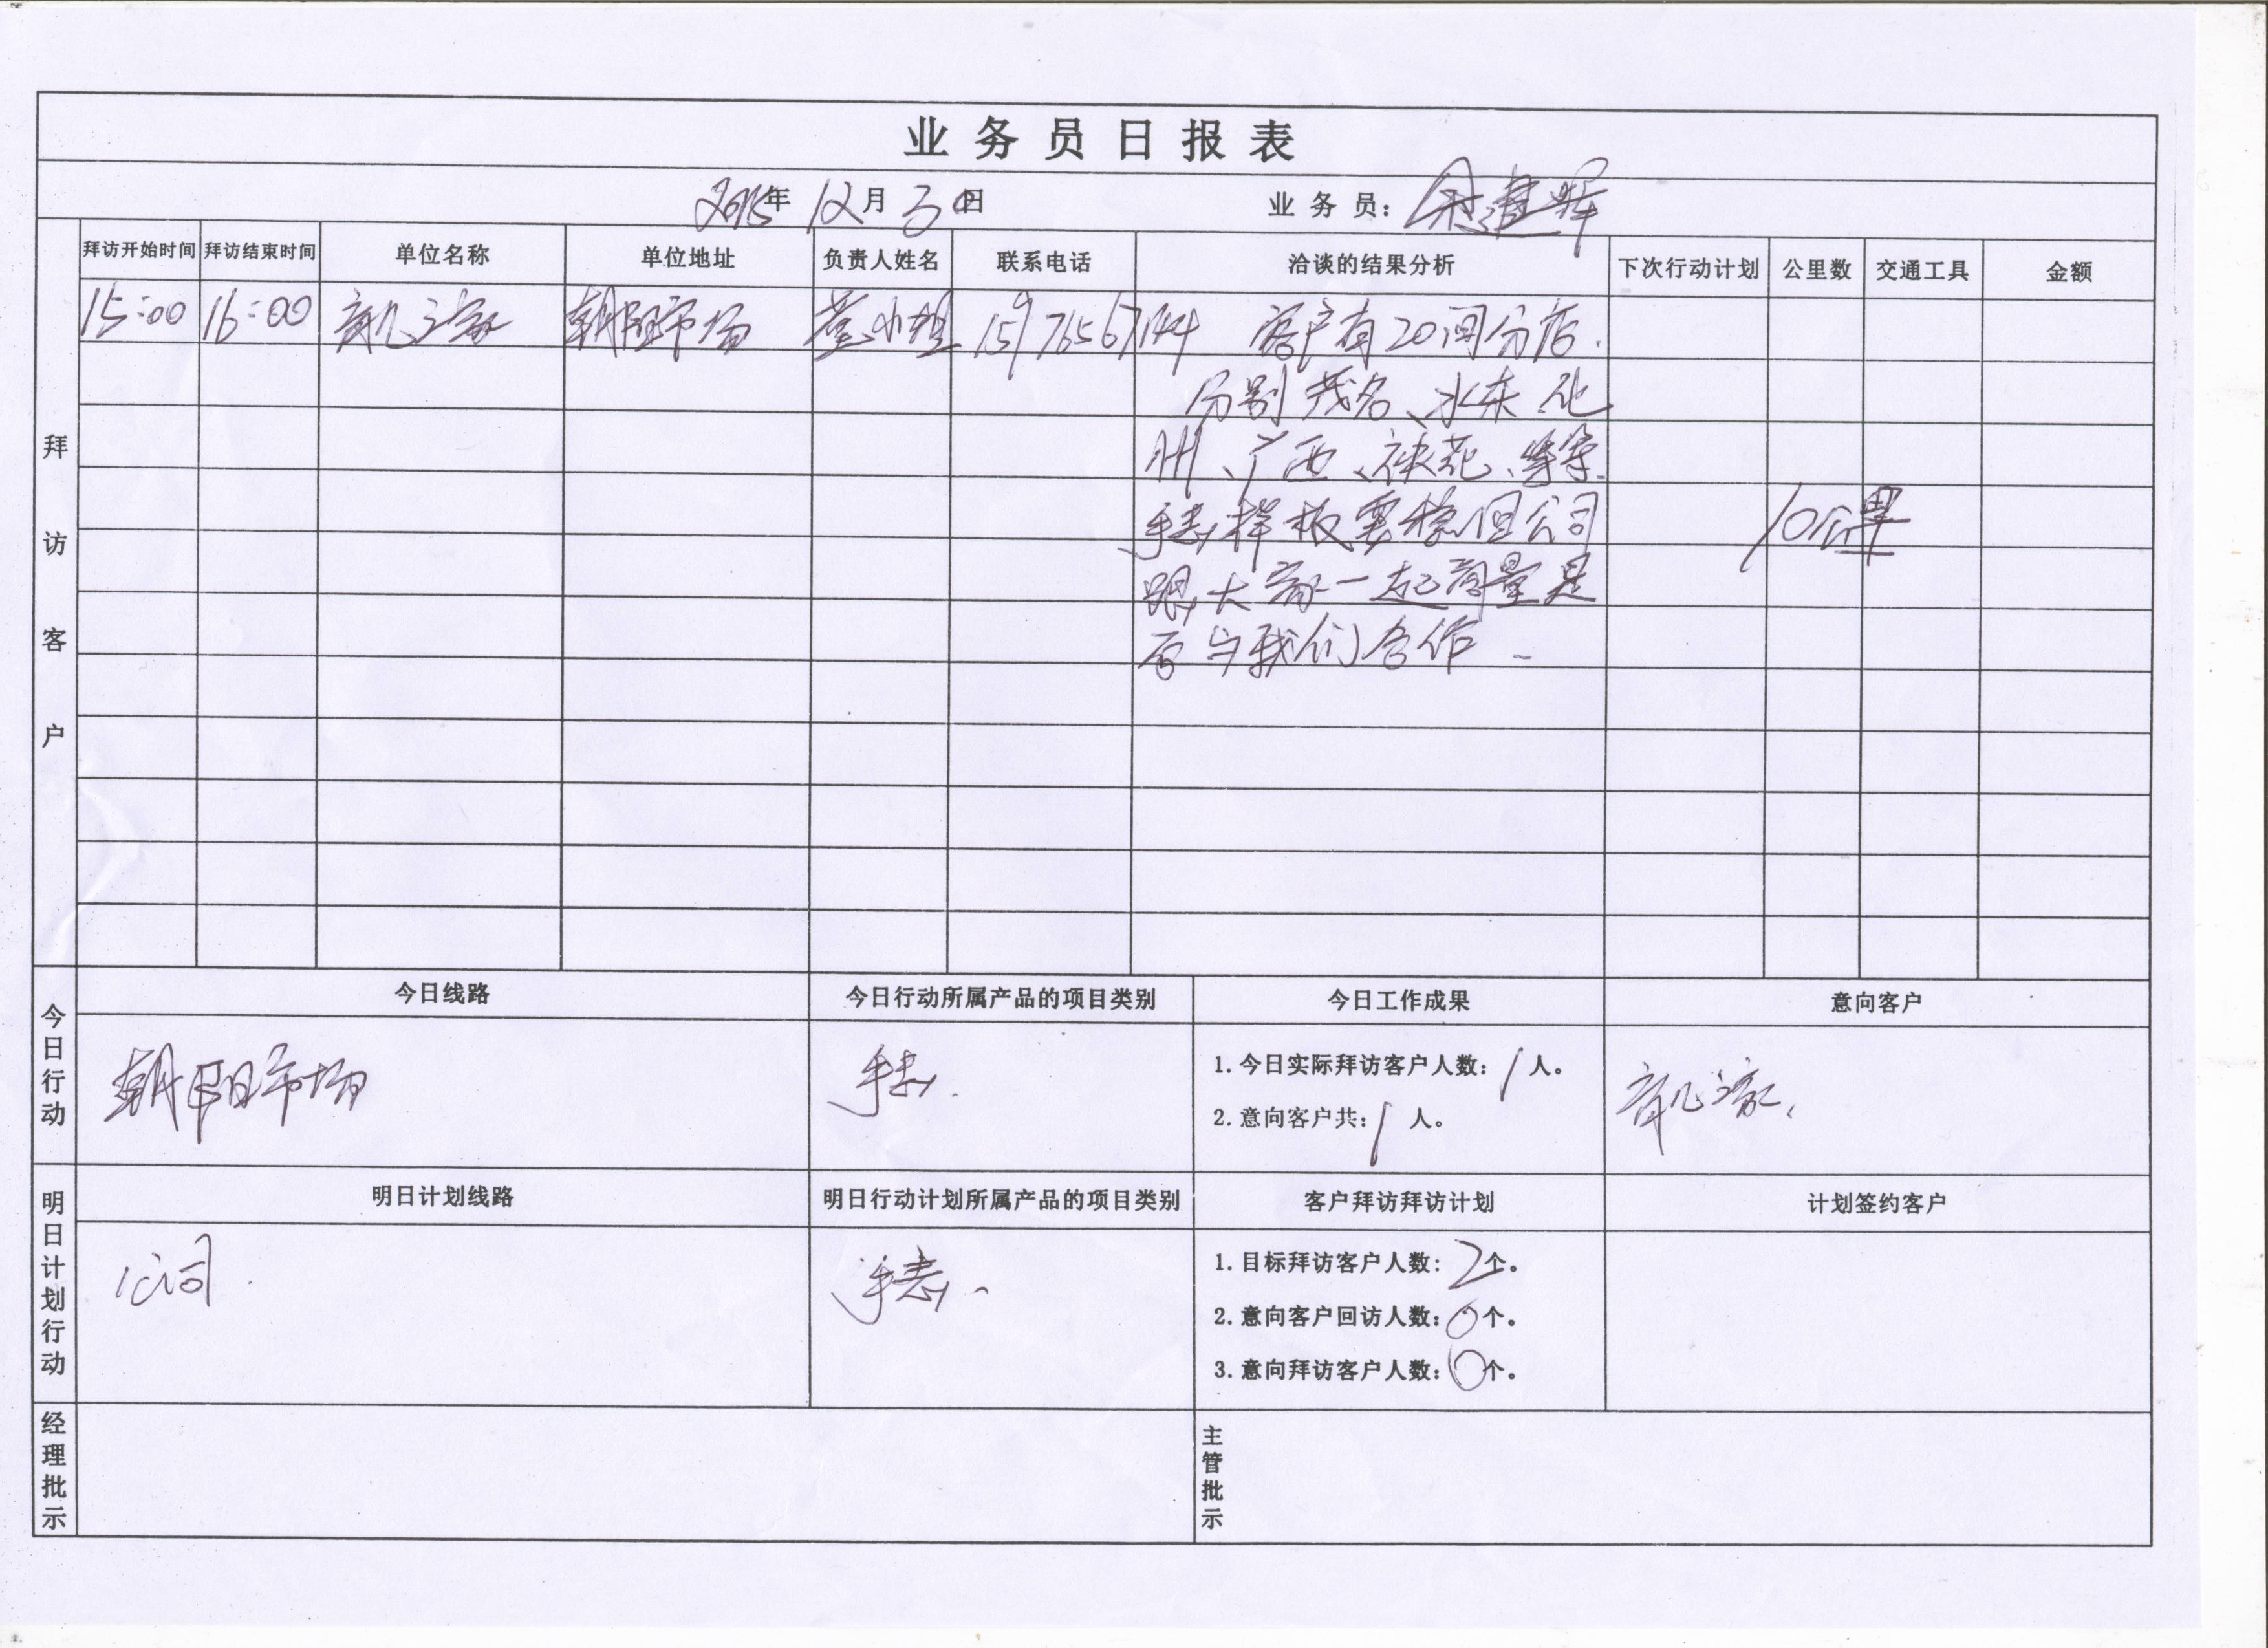 业务员日报表
2015年 12月 30日 业务员:
拜访开始时间 拜访结束时间 单位名称 单位地址 负责人姓名 联系电话 洽谈的结果分析 下次行动计划 公里数 交通工具 金额
拜访客户
15:00 16:00 之家 朝阳市场 小姐 15976567144 客户有20间分店.
分别茂名、水东、化
州、广西、等等.
手表样板要 但公司
跟大家一起商量是
否与我们合作
10公里
今日行动
今日线路 今日行动所属产品的项目类别 今日工作成果 意向客户
朝阳市场 手表.
1.今日实际拜访客户人数: 1 人。
2.意向客户共: 1 人。
之家
明日计划行动
明日计划线路 明日行动计划所属产品的项目类别 客户拜访拜访计划 计划签约客户
公司. 手表.
1.目标拜访客户人数: 2个。
2.意向客户回访人数: 0个。
3.意向拜访客户人数: 0个。
经理批示
主管批示